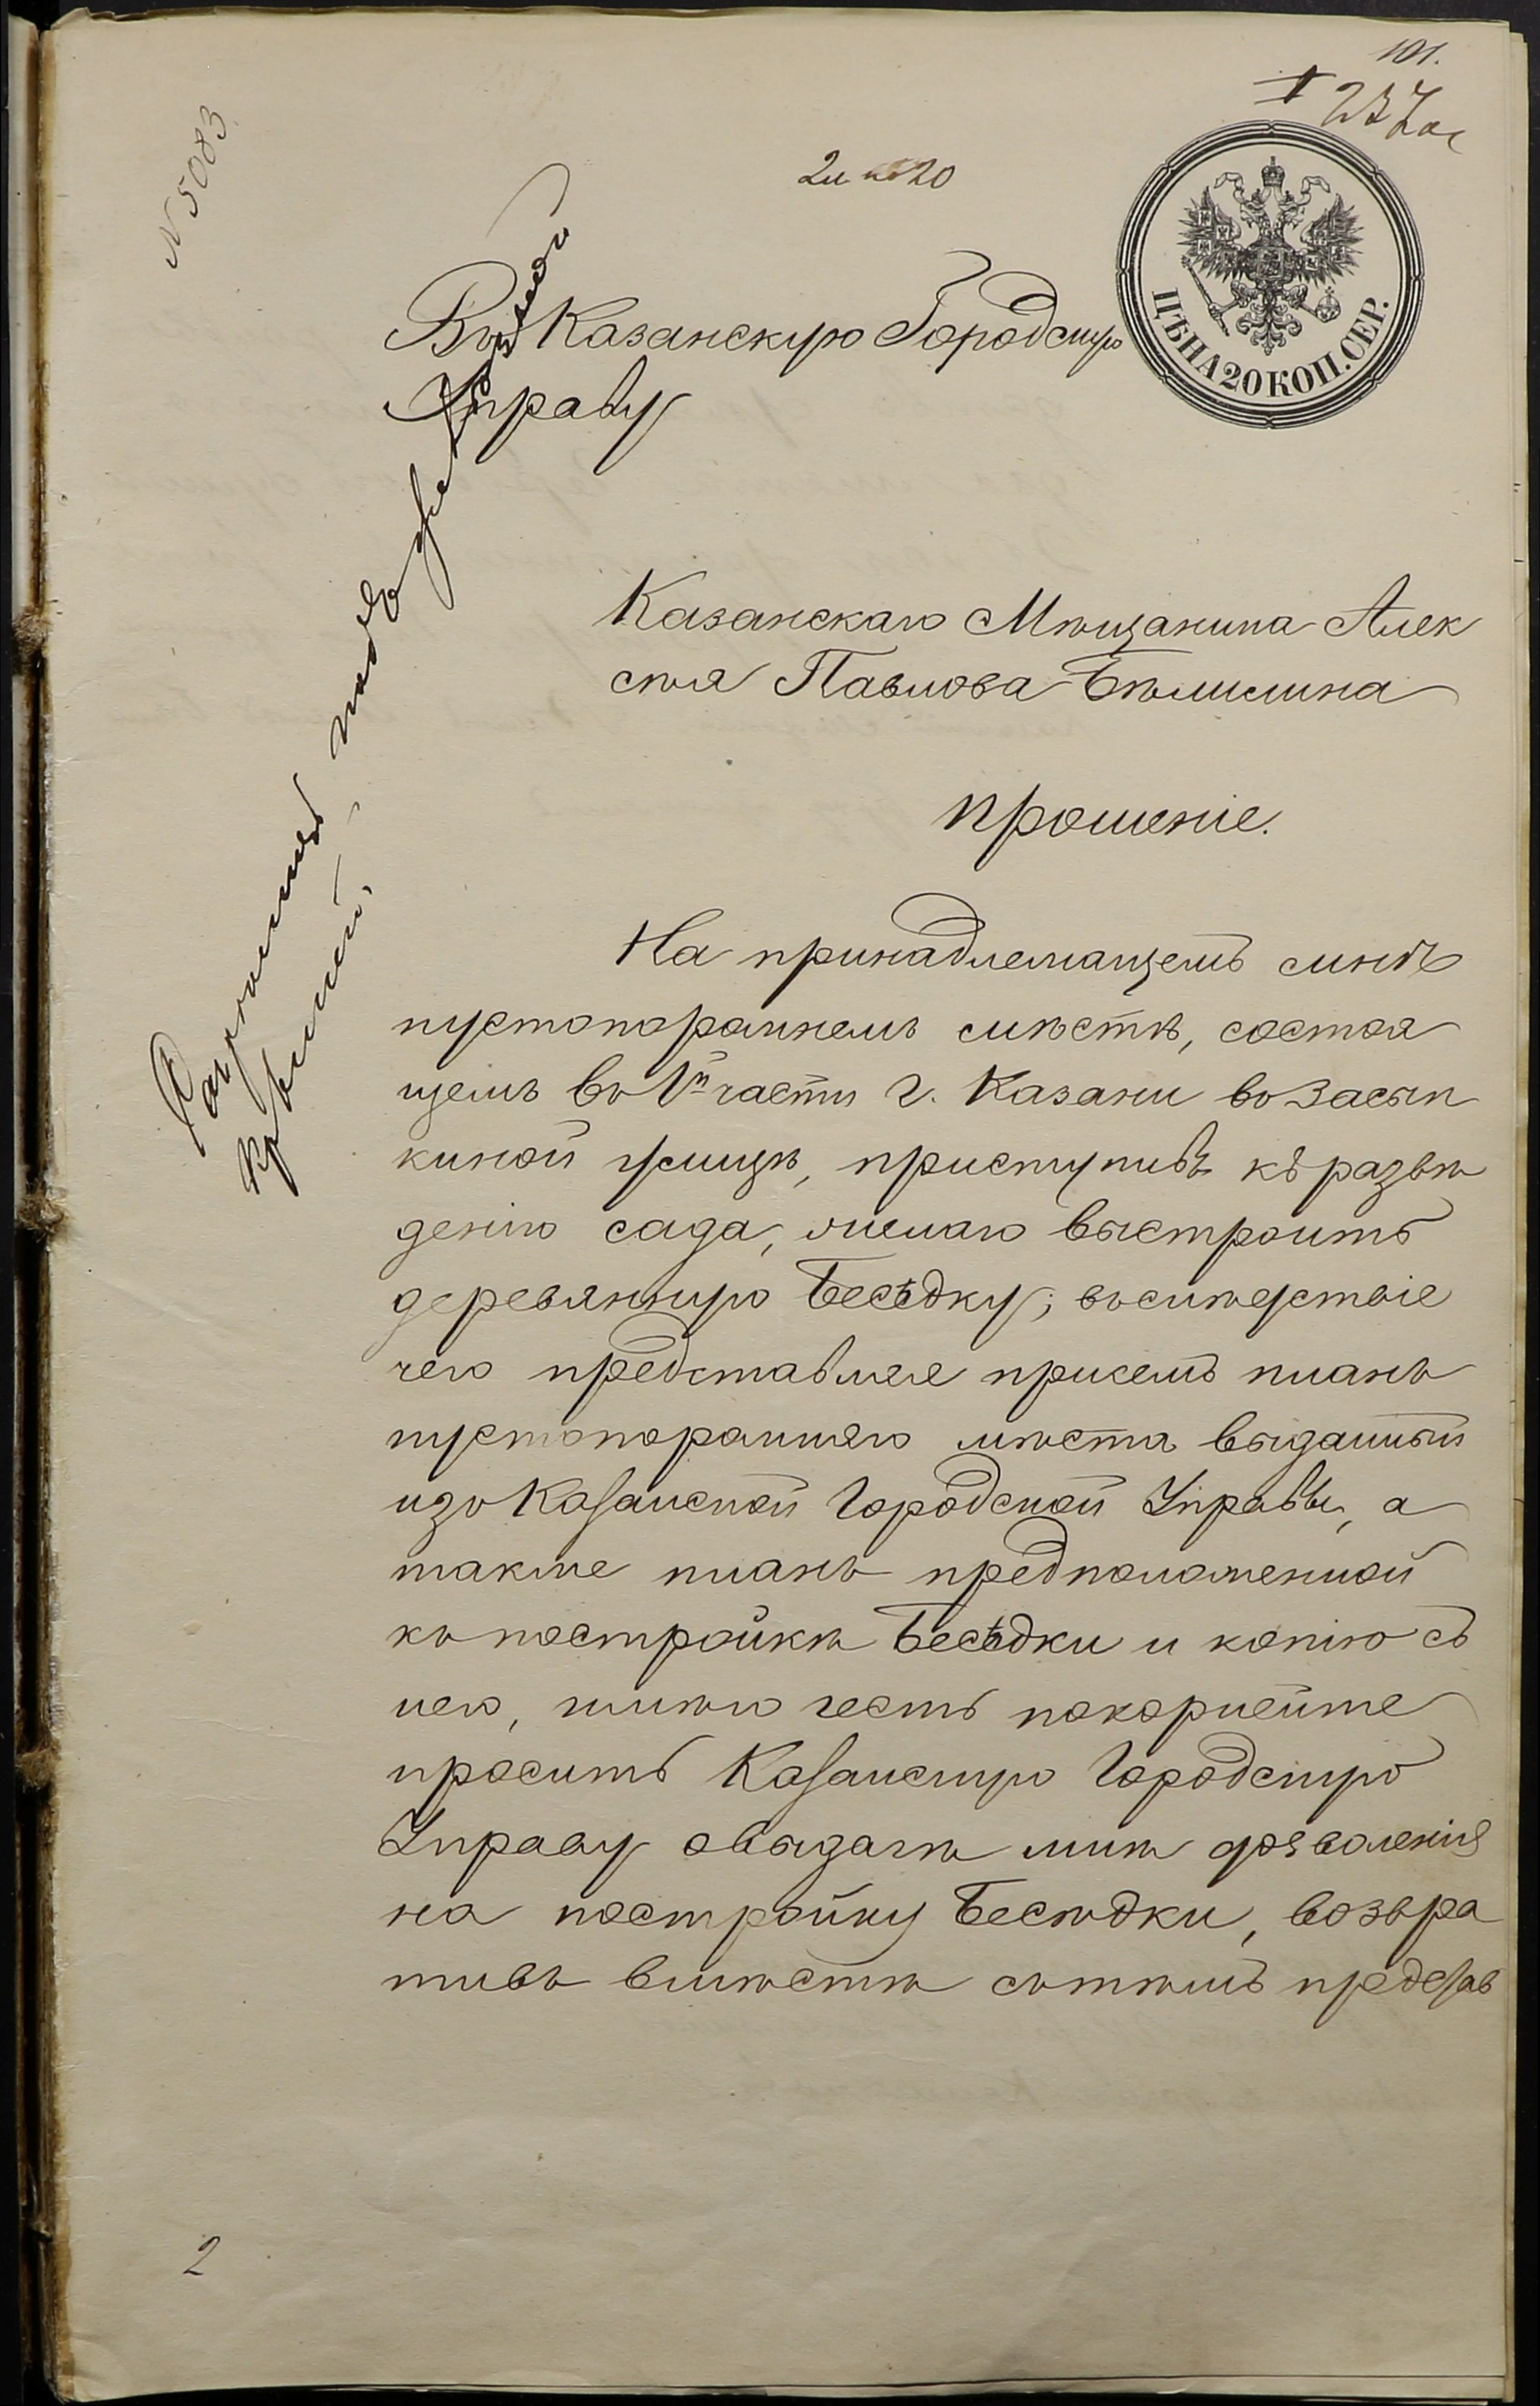 101.
237
№ 5083
ЦѢНА 20 КОП. СЕР.
Въ Казанскую Городскую
Управу
Казанскаго Мѣщанина Алек
сѣя Павлова Бѣлилина
прошеніе.
На принадлежащемъ мнѣ
пустопорожнемъ мѣстѣ, состоя
щемъ во 1й части г. Казани во Засып
киной улицѣ, приступивъ къ разве
денію сада, желаю выстроить
деревянную Бесѣдку; вслѣдствіе
чего представляя присемъ планъ
пустопорожняго мѣста выданный
изъ Казанской Городской Управы, а
также планъ предположенной
къ постройкѣ Бесѣдки и копію съ
него, имѣю честь покорнейше
просить Казанскую Городскую
Управу овыдачѣ мнѣ дозволенія
на постройку Бесѣдки, возвра
тивъ вмѣстѣ сътѣмъ представ
2